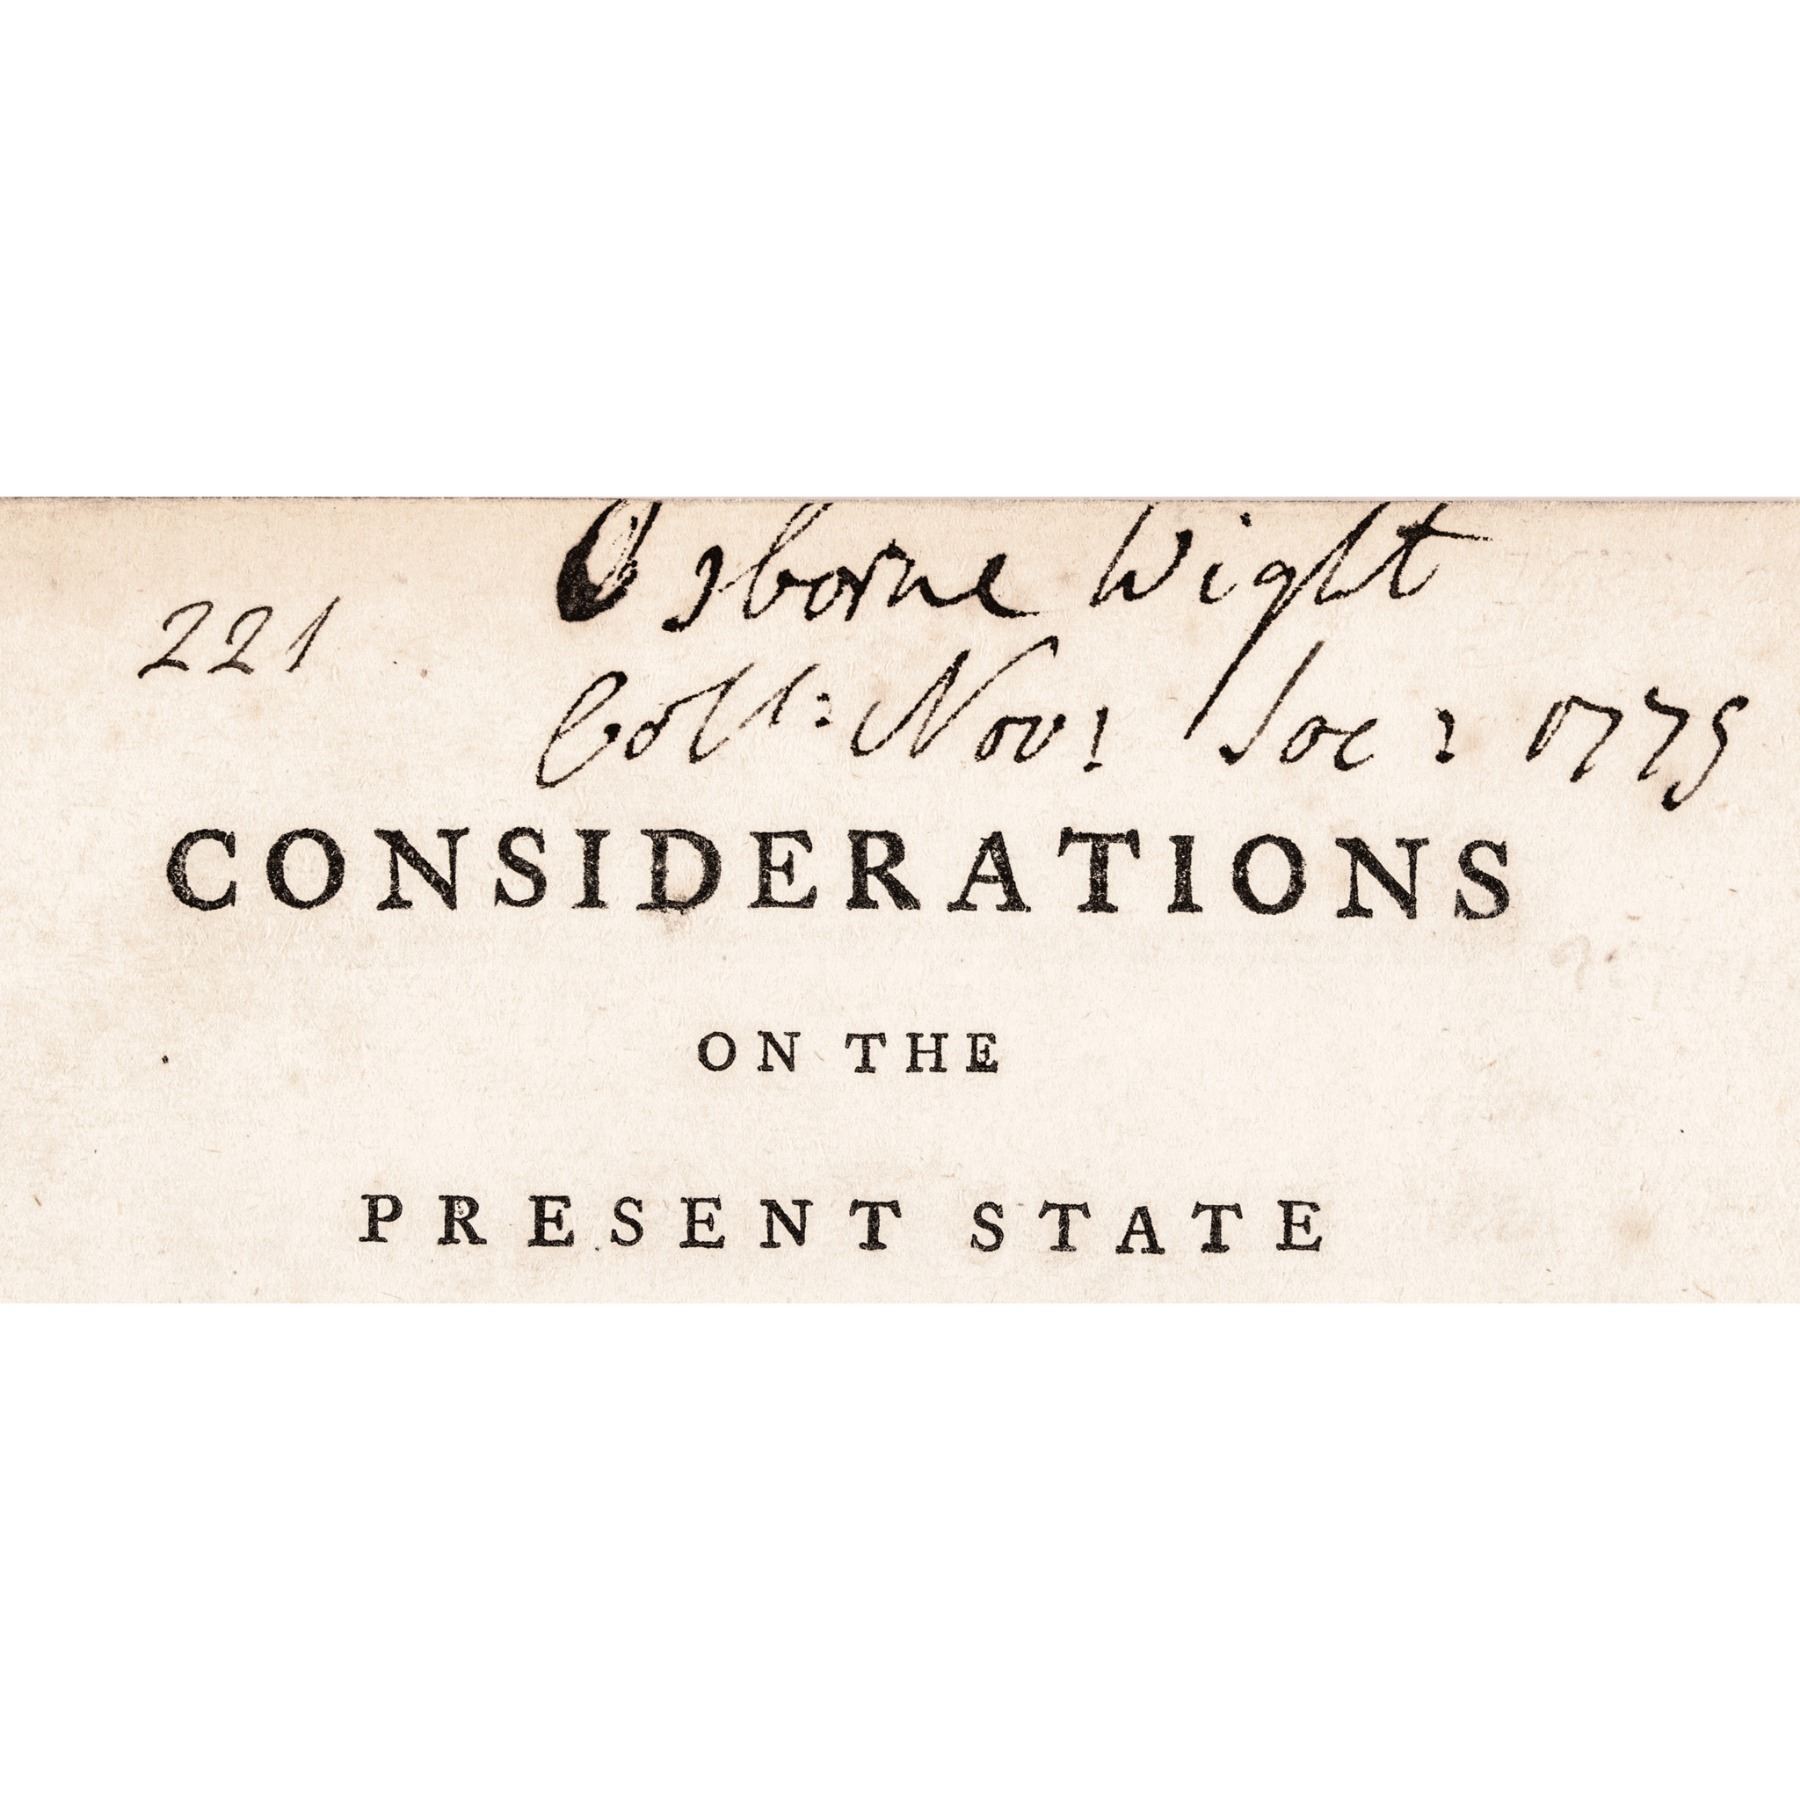 Osborne Wight
221
Coll: Nov: Soc: 1775
CONSIDERATIONS
ON THE
PRESENT STATE